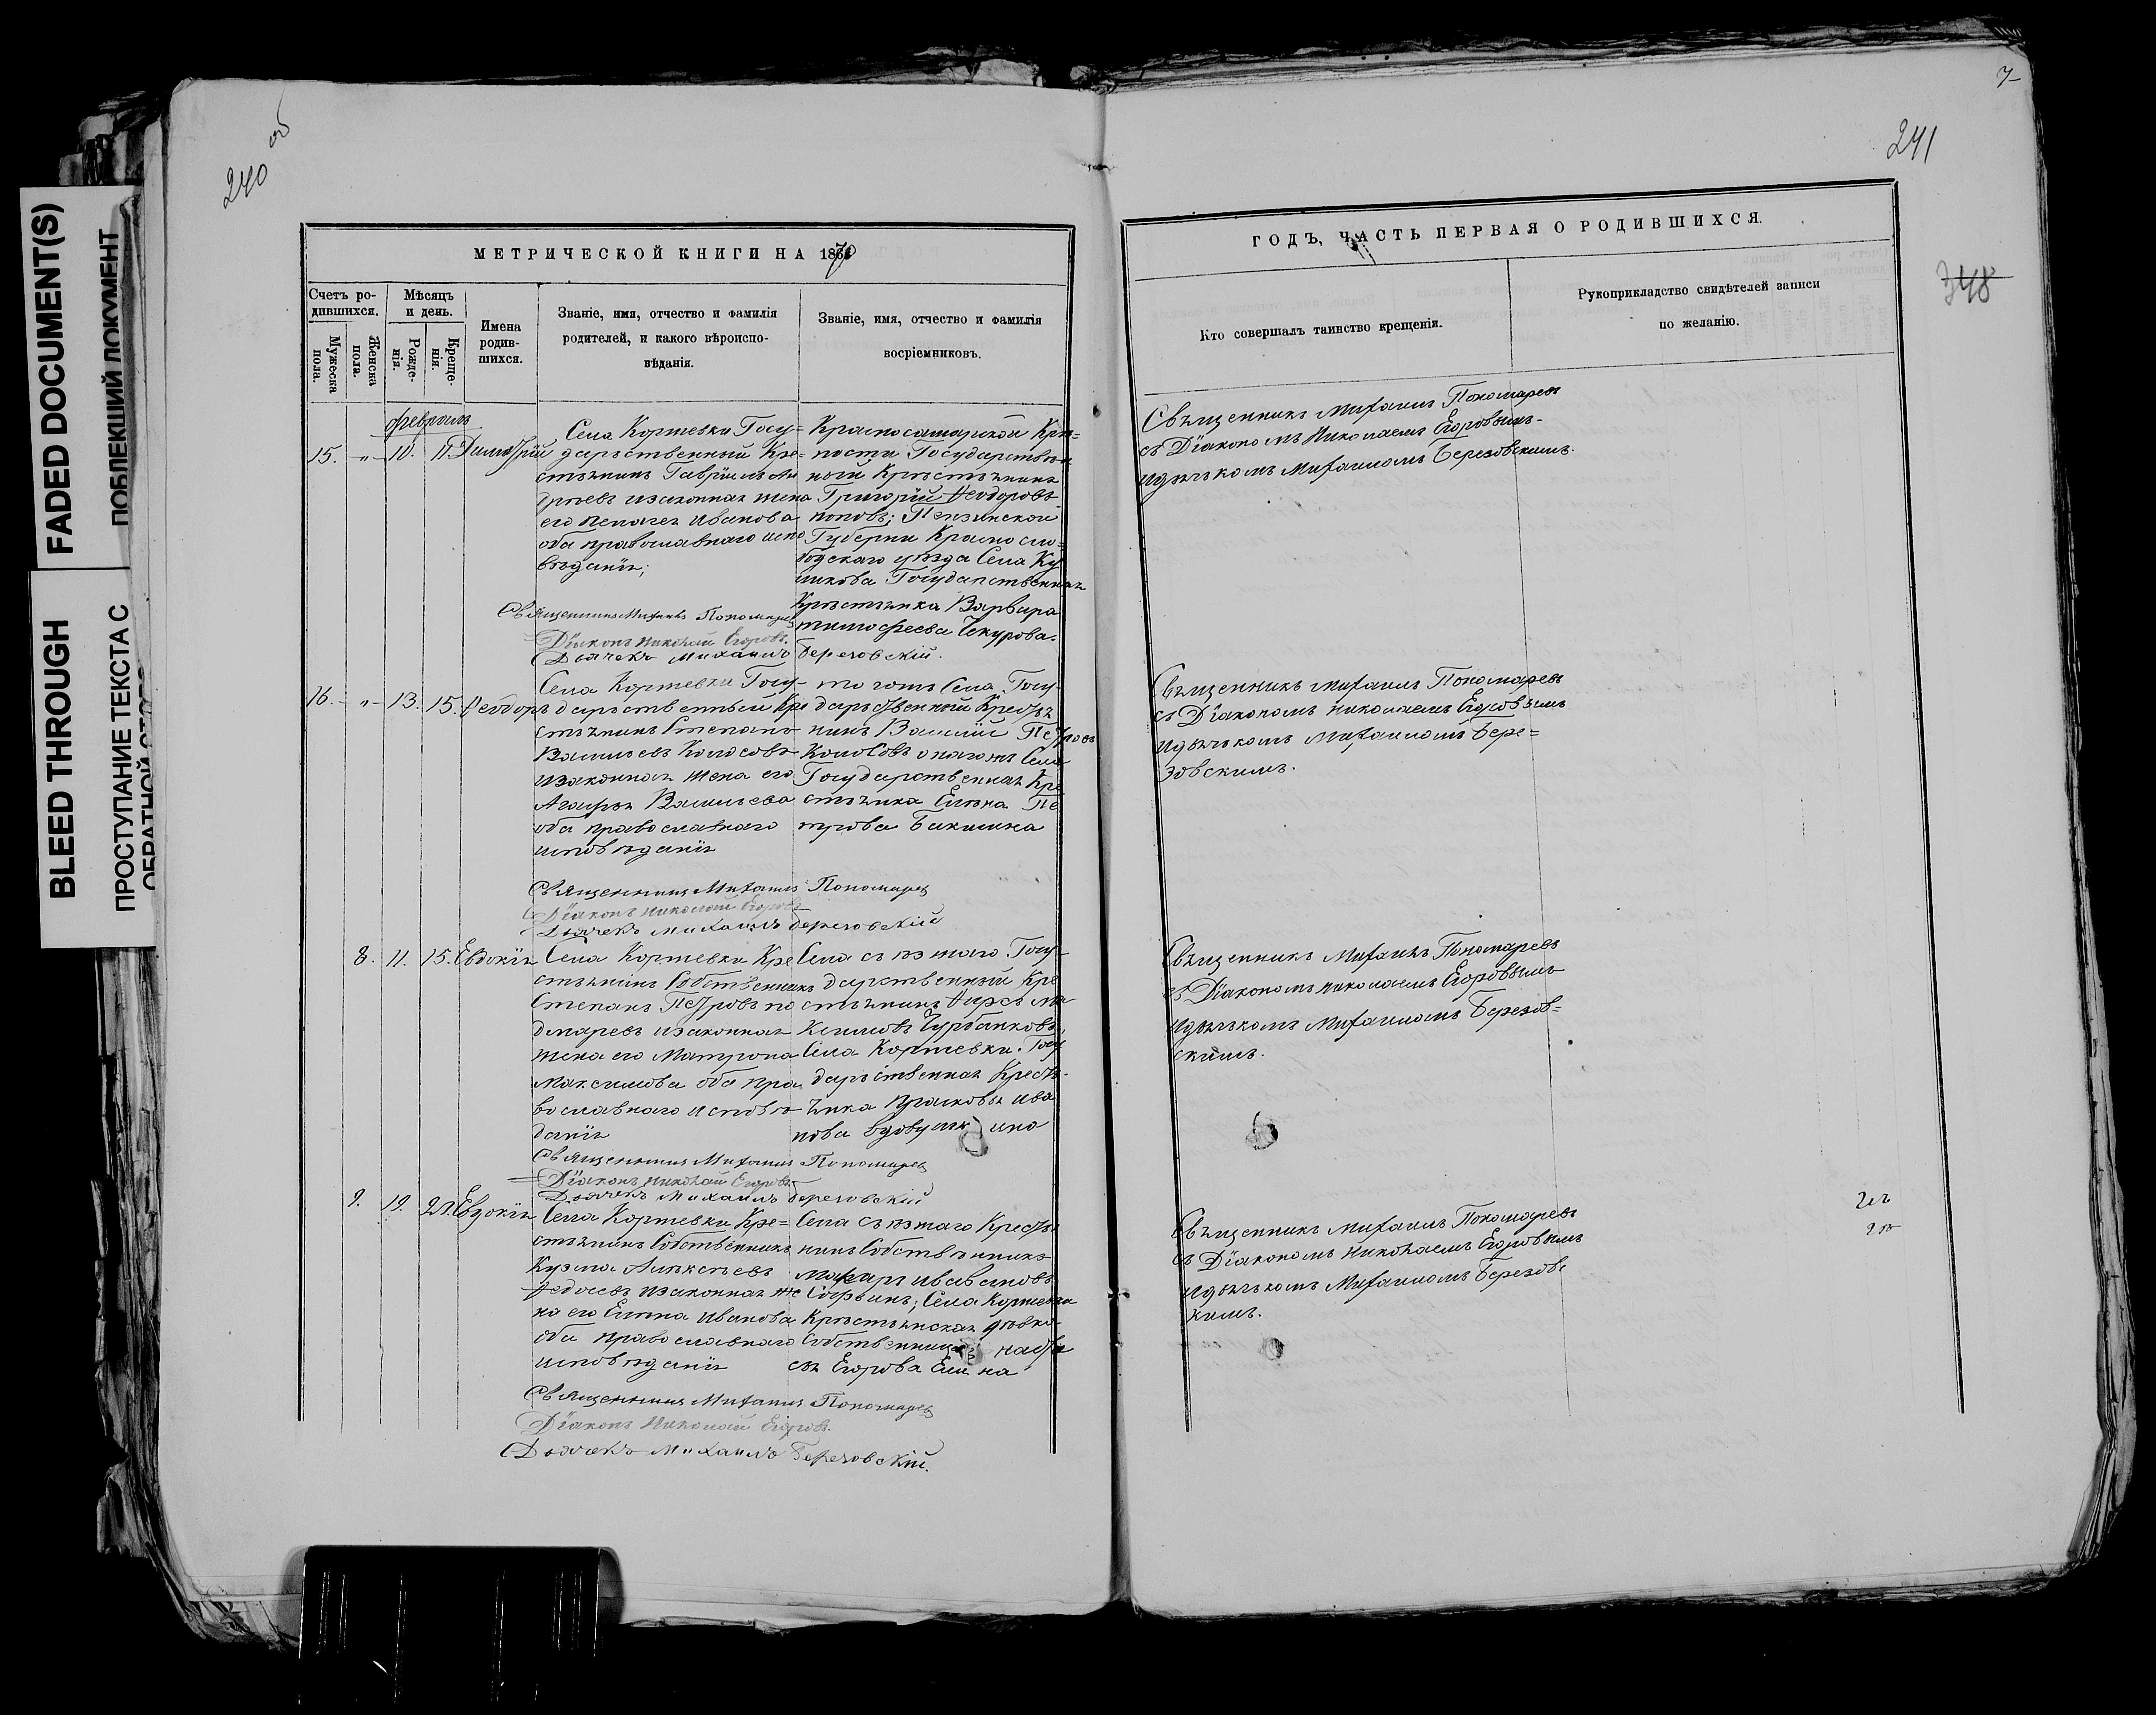 FADED DOCUMENT(S)
ПОБЛЕКШИЙ ДОКУМЕНТ
BLEED THROUGH
ПРОСТУПАНИЕ ТЕКСТА С
240 об
7
241
348
МЕТРИЧЕСКОЙ КНИГИ НА 1870
Счетъ родившихся.
Мужеска пола.
Женска пола.
Мѣсяцъ и день.
Рожденія.
Крещенія.
Имена родившихся.
Званіе, имя, отчество и фамилія
родителей, и какого вѣроиспо-
вѣданія.
Званіе, имя, отчество и фамилія
восріемниковъ.
февраль
15. " 10. 11. Димитрій
Села Коржевки Госу-
дарственный Кре-
стьянинъ Гавріилъ Ан
дреевъ изаконная жена
его Иванова
оба православнаго испо
вѣданія;
Красносамарской Крѣ-
пости Государствен
ной Крестьянинъ
Григорій Ѳеодоровъ
поповъ; Пензинской
Губерни Красно сло-
бодскаго уѣзда Села Ку
ликова Государственная
Крѣстьянка Варвара
тимофеева Чекурова.
Священникъ Михаилъ Пономаревъ
Діаконъ Николай Егоровъ.
Дьячекъ Михаилъ Березовскій.
16. " 13. 15. Ѳеодоръ
Села Коржевки Госу-
дарственный Кре
стьянинъ Степанъ
Васильевъ Колосовъ
изаконная жена его
Агафья Васильева
оба православнаго
исповѣданія
того жъ Села Госу-
дарственный Кресть
нинъ Василій Петровъ
Колосовъ онагожъ Села
Государственная Кре
стьянка Елѣна Пе
трова Бакшина
Священникъ Михаилъ Пономаревъ
Діаконъ Николай Егоровъ
Дьячекъ Михаилъ Березовскій
8. 11. 15. Евдокія
Села Коржевки Кре
стьянинъ Собственникъ
Степанъ Петровъ по
номаревъ изаконная
жена его Матрона
Максимова оба пра
вославнаго исповѣ
данія
Села съѣзжаго Госу-
дарственный Кре
стьянинъ
Чурбанковъ,
Села Коржевки. Госу
дарственная Кресть-
янка прасковья ива
нова вдовушкино
Священникъ Михаилъ Пономаревъ
Діаконъ Николай Егоровъ
Дьячекъ Михаилъ Березовскій
9. 19. 21. Евдокія
Села Коржевки Кре-
стьянинъ Собственникъ
Кузма Алѣксѣевъ
изаконная же
на его Елѣна Иванова
оба православнаго
исповѣданія
Села съѣзжаго Кресть
нинъ Собственникъ
Села Коржевки
Крѣстьянская дѣвка
Собственница наста
сья Егорова
Священникъ Михаилъ Пономаревъ
Діаконъ Николай Егоровъ.
Дьячекъ Михаилъ Березовскій.
ГОДЪ, ЧАСТЬ ПЕРВАЯ О РОДИВШИХСЯ.
Кто совершалъ таинство крещенія.
Рукоприкладство свидѣтелей записи
по желанію.
Свѣщенникъ Михаилъ Пономаревъ
съ Діакономъ Николаемъ Егоровымъ-
идьячкомъ Михаиломъ Березовскимъ.
Свѣщенникъ Михаилъ Пономаревъ
съ Діакономъ Николаемъ Егоровымъ
идьячкомъ Михаиломъ Бере=
зовскимъ.
Свѣщенникъ Михаилъ Пономаревъ
съ Діакономъ николаемъ Егоровымъ
идьячкомъ Михаиломъ Березов=
скимъ.
Свѣщенникъ Михаилъ Пономаревъ
съ Діакономъ Николаемъ Егоровымъ
идьячкомъ Михаиломъ Березовс
кимъ.